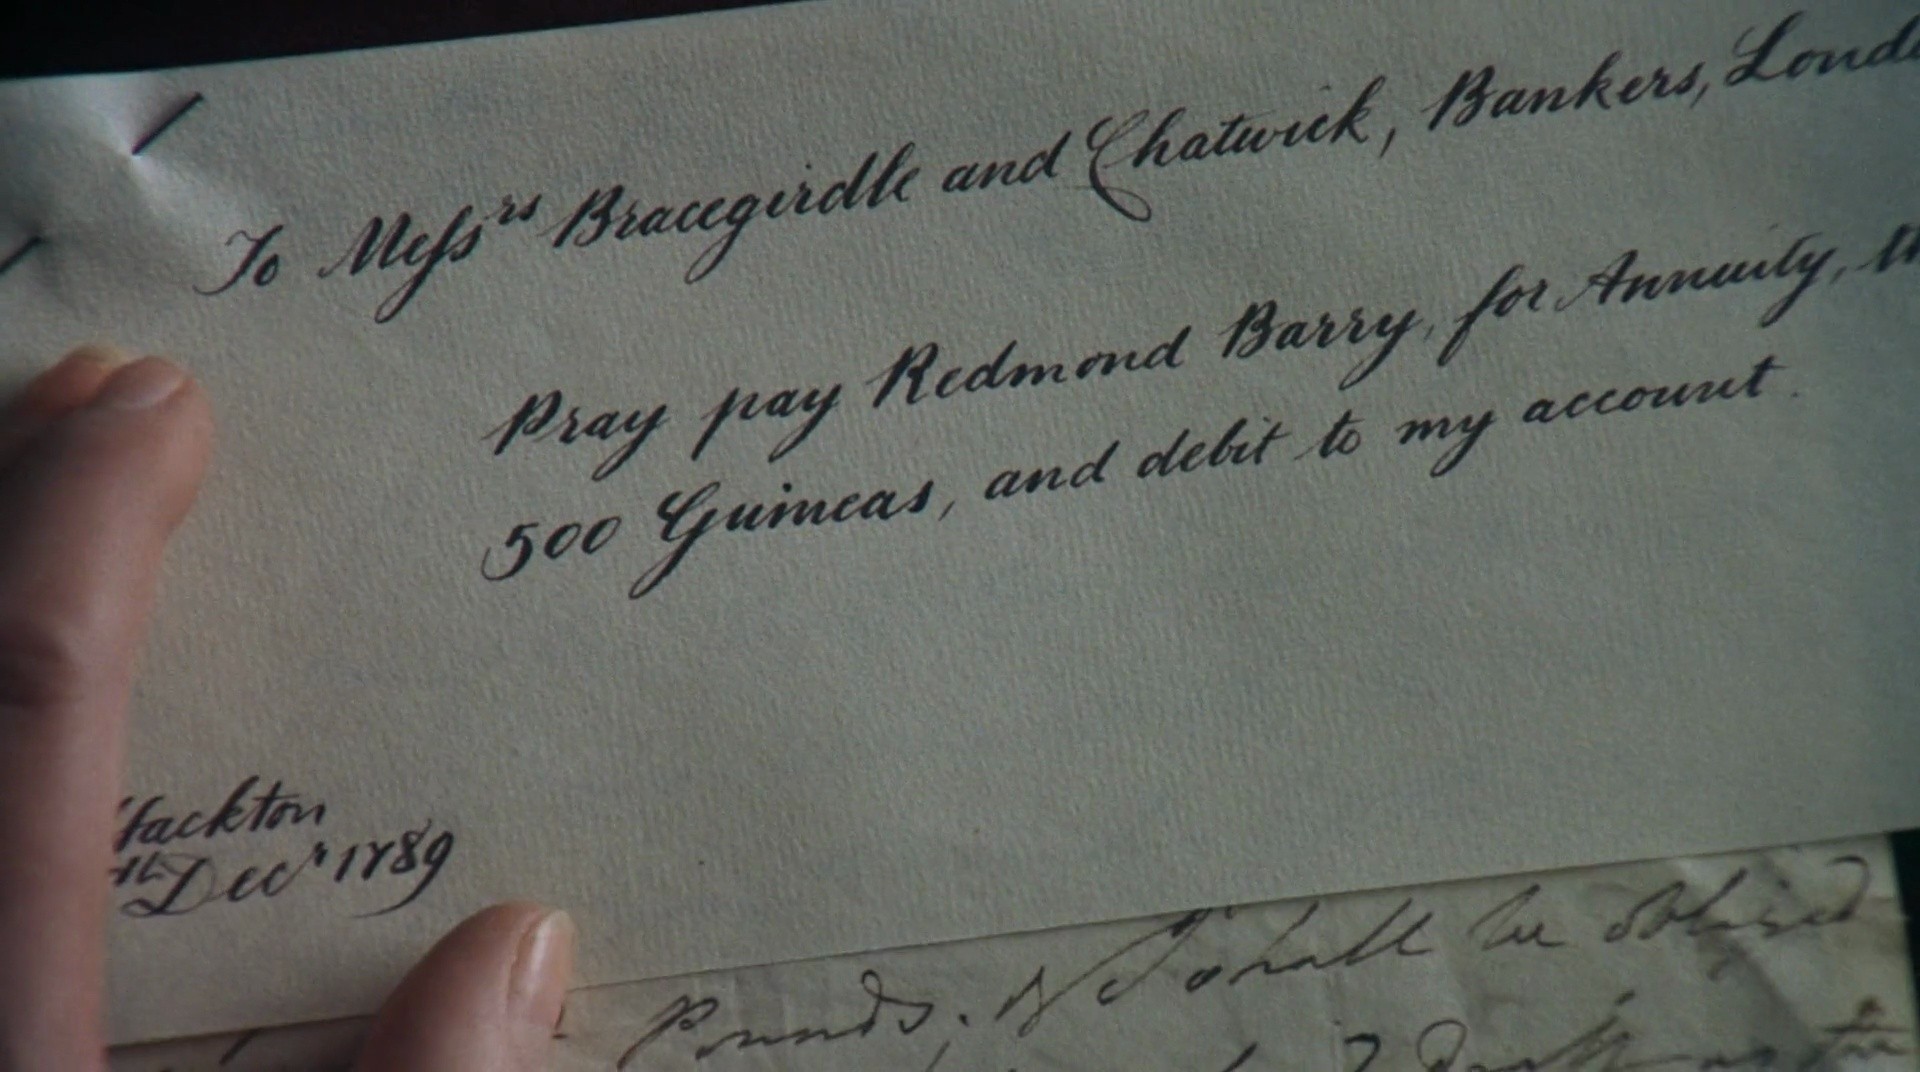 To Messrs Bracegirdle and Chatwick, Bankers, Londo
Pray pay Redmond Barry, for Annuity, th
500 Guineas, and debit to my account.
Hackton
th Decr 1789
Pounds. shall be obliged